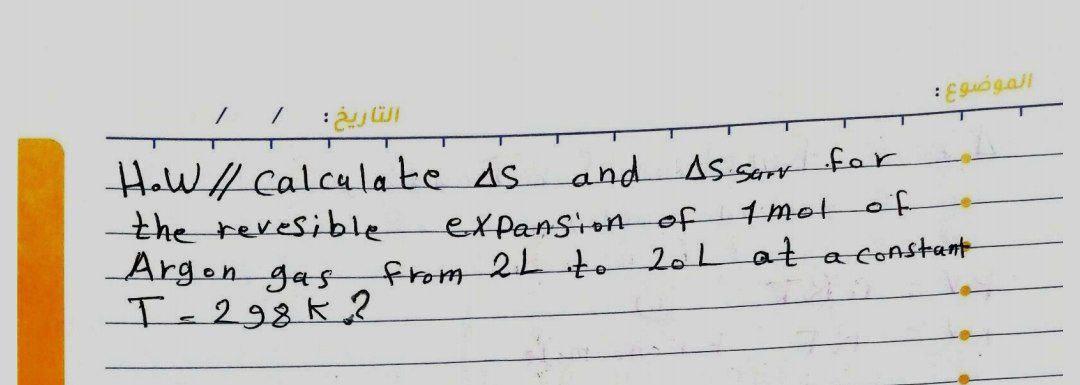 الموضوع :
التاريخ : / /
H.W // Calculate ΔS and ΔS surr for
the revesible expansion of 1 mol of
Argon gas from 2L to 20L at a constant
T = 298 K ?